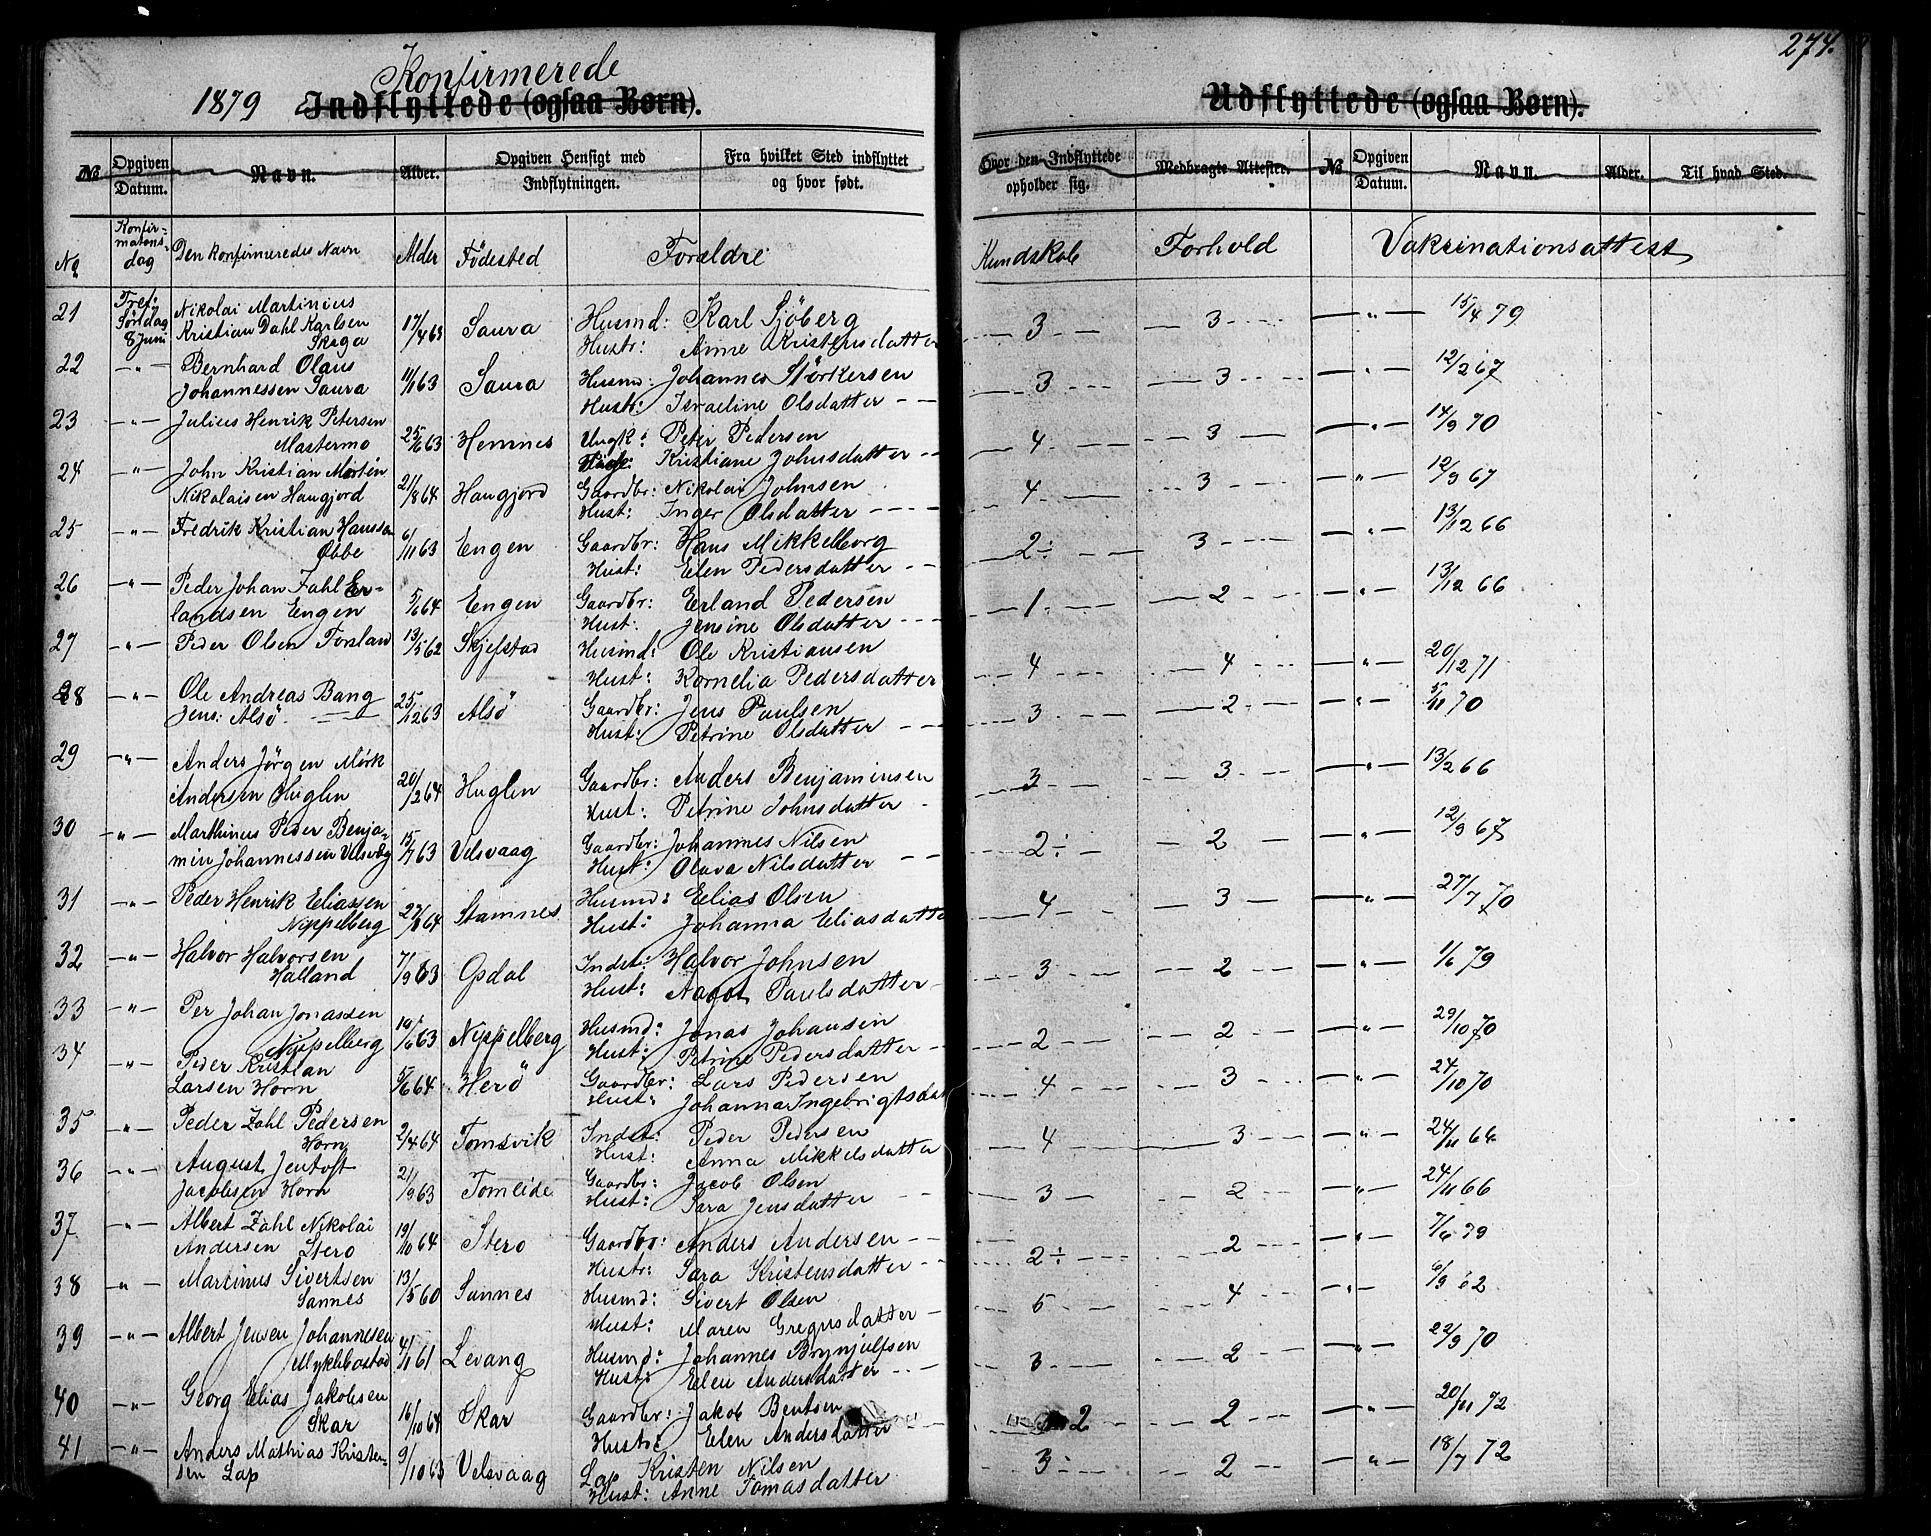 274.
Konfirmerede
1879 Indflyttede (ogsaa Børn). Udflyttede (ogsaa Børn).
№ Opgiven Datum. Navn. Alder. Opgiven Hensigt med Indflytningen. Fra hvilket Sted indflyttet og hvor født. Hvor den Indflyttede opholder sig. Medbragte Attester. № Opgiven Datum. Navn. Alder. Til hvad Sted.
No Konfirmationsdag Den Konfirmeredes Navn Alder Födested Forældre Kundskab Forhold Vakcinationsattest
21 Tref. Nikolai Martinius
Söndag Kristian Dahl Karlsen 17/4 63 Saura Husmd: Karl Sjöberg 3 3 15/4 79
8 Juni Skaga Hustr: Anne Kristensdatter
22 " Bernhard Olaus
Johannessen Saura 11/1 63 Saura Husmd: Johannes Störkersen 3 3 " 12/2 67
Hustr: Israeline Olsdatter
23 " Julius Henrik Petersen
Mastermo 25/6 63 Hemnes Ungk: Peter Pedersen 4 3 " 14/9 70
Pige: Kristiane Johnsdatter
24 " John Kristian Mortin
Nikolaisen Haugjord 21/8 64 Haugjord Gaardbr: Nikolai Johnsen 4 3 " 12/9 67
Hust: Inger Olsdatter
25 " Fredrik Kristian Hanssen
Øbbe 6/11 63 Engen Gaardbr: Hans Mikkelborg 2÷ 3 " 13/12 66
Hust: Elen Pedersdatter
26 " Peder Johan Zahl Er-
landsen Engen 5/6 64 Engen Gaardbr: Erland Pedersen 1 2 " 13/12 66
Hust: Jensine Olsdatter
27 " Peder Olsen Forsland 13/5 62 Skjefstad Husmd: Ole Kristiansen 4 4 " 20/12 71
Hust: Kornelia Pedersdatter
28 " Ole Andreas Bang
Jens: Alsö 25/12 63 Alsö Gaardbr: Jens Paulsen 3 2 " 5/11 70
Hust: Petrine Olsdatter
29 " Anders Jörgen Mörk
Andersen Huglen 20/2 64 Huglen Gaardbr: Anders Benjaminsen 3 3 " 13/2 66
Hust: Petrine Johnsdatter
30 " Marthinus Peder Benja-
min Johannessen Velsvåg 15/7 63 Velsvaag Gaardbr: Johannes Nilsen 2÷ 2 " 12/9 67
Hust: Olava Nilsdatter
31 " Peder Henrik Eliassen
Nippelberg 27/8 64 Stamnes Husmd: Elias Olsen 4 3 " 27/7 70
Hust: Johanna Eliasdatter
32 " Halvor Halvorsen
Halland 7/9 63 Opdal Indst: Halvor Johnsen 3 2 " 1/6 79
Hust: Paulsdatter
33 " Per Johan Jonassen
Nippelberg 10/6 63 Nippelberg Husmd: Jonas Johansen 2 2 " 29/10 70
Hust: Petrine Pedersdatter
34 " Peder Kristian
Larsen Horn 5/6 64 Herö Gaardbr: Lars Pedersen 4 3 " 24/10 70
Hust: Johanna Ingebrigtsdat
35 " Peder Zahl Pedersen
Horn 2/4 64 Tomsvik Indst: Peder Pedersen 4 3 " 24/11 64
Hust: Anna Mikkelsdatter
36 " August Jentoft
Jacobsen Horn 21/9 63 Tomeide Gaardbr: Jacob Olsen 3 2 " 24/11 66
Hust: Sara Jensdatter
37 " Albert Zahl Nikolai
Andersen Stero 19/10 64 Stero Gaardbr: Anders Andersen 2÷ 2 " 7/6 79
Hustr: Sara Kristensdatter
38 " Martinus Sivertsen
Sannes 13/5 60 Sannes Husmd: Sivert Olsen 5 4 " 6/9 62
Hust: Maren Gregusdatter
39 " Albert Jensen Johannesen
Myklebostad 4/1 61 Levang Husmd: Johannes Brynjulfsen 3 2 " 22/9 70
Hust: Elen Andersdatter
40 " Georg Elias Jakobsen
Skar 16/10 64 Skar Gaardbr: Jakob Bentsen 2 2 " 20/11 72
Hust: Elen Andersdatter
41 " Anders Mathias Kristen-
sen Lap 9/10 63 Velsvaag Lap Kristen Nilsen 3 2 " 18/7 72
Hust: Anne Tomasdatter